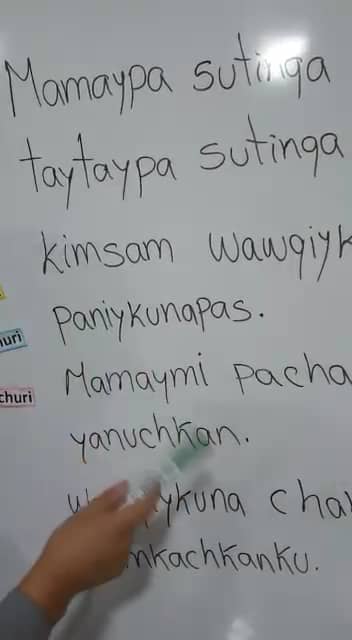 Mamaypa sutinqa
taytaypa sutinqa
kimsam wawqiyk
paniykunapas.
uri
Mamaymi pacha
churi
yanuchkan.
ykuna cha
nkachkanku.